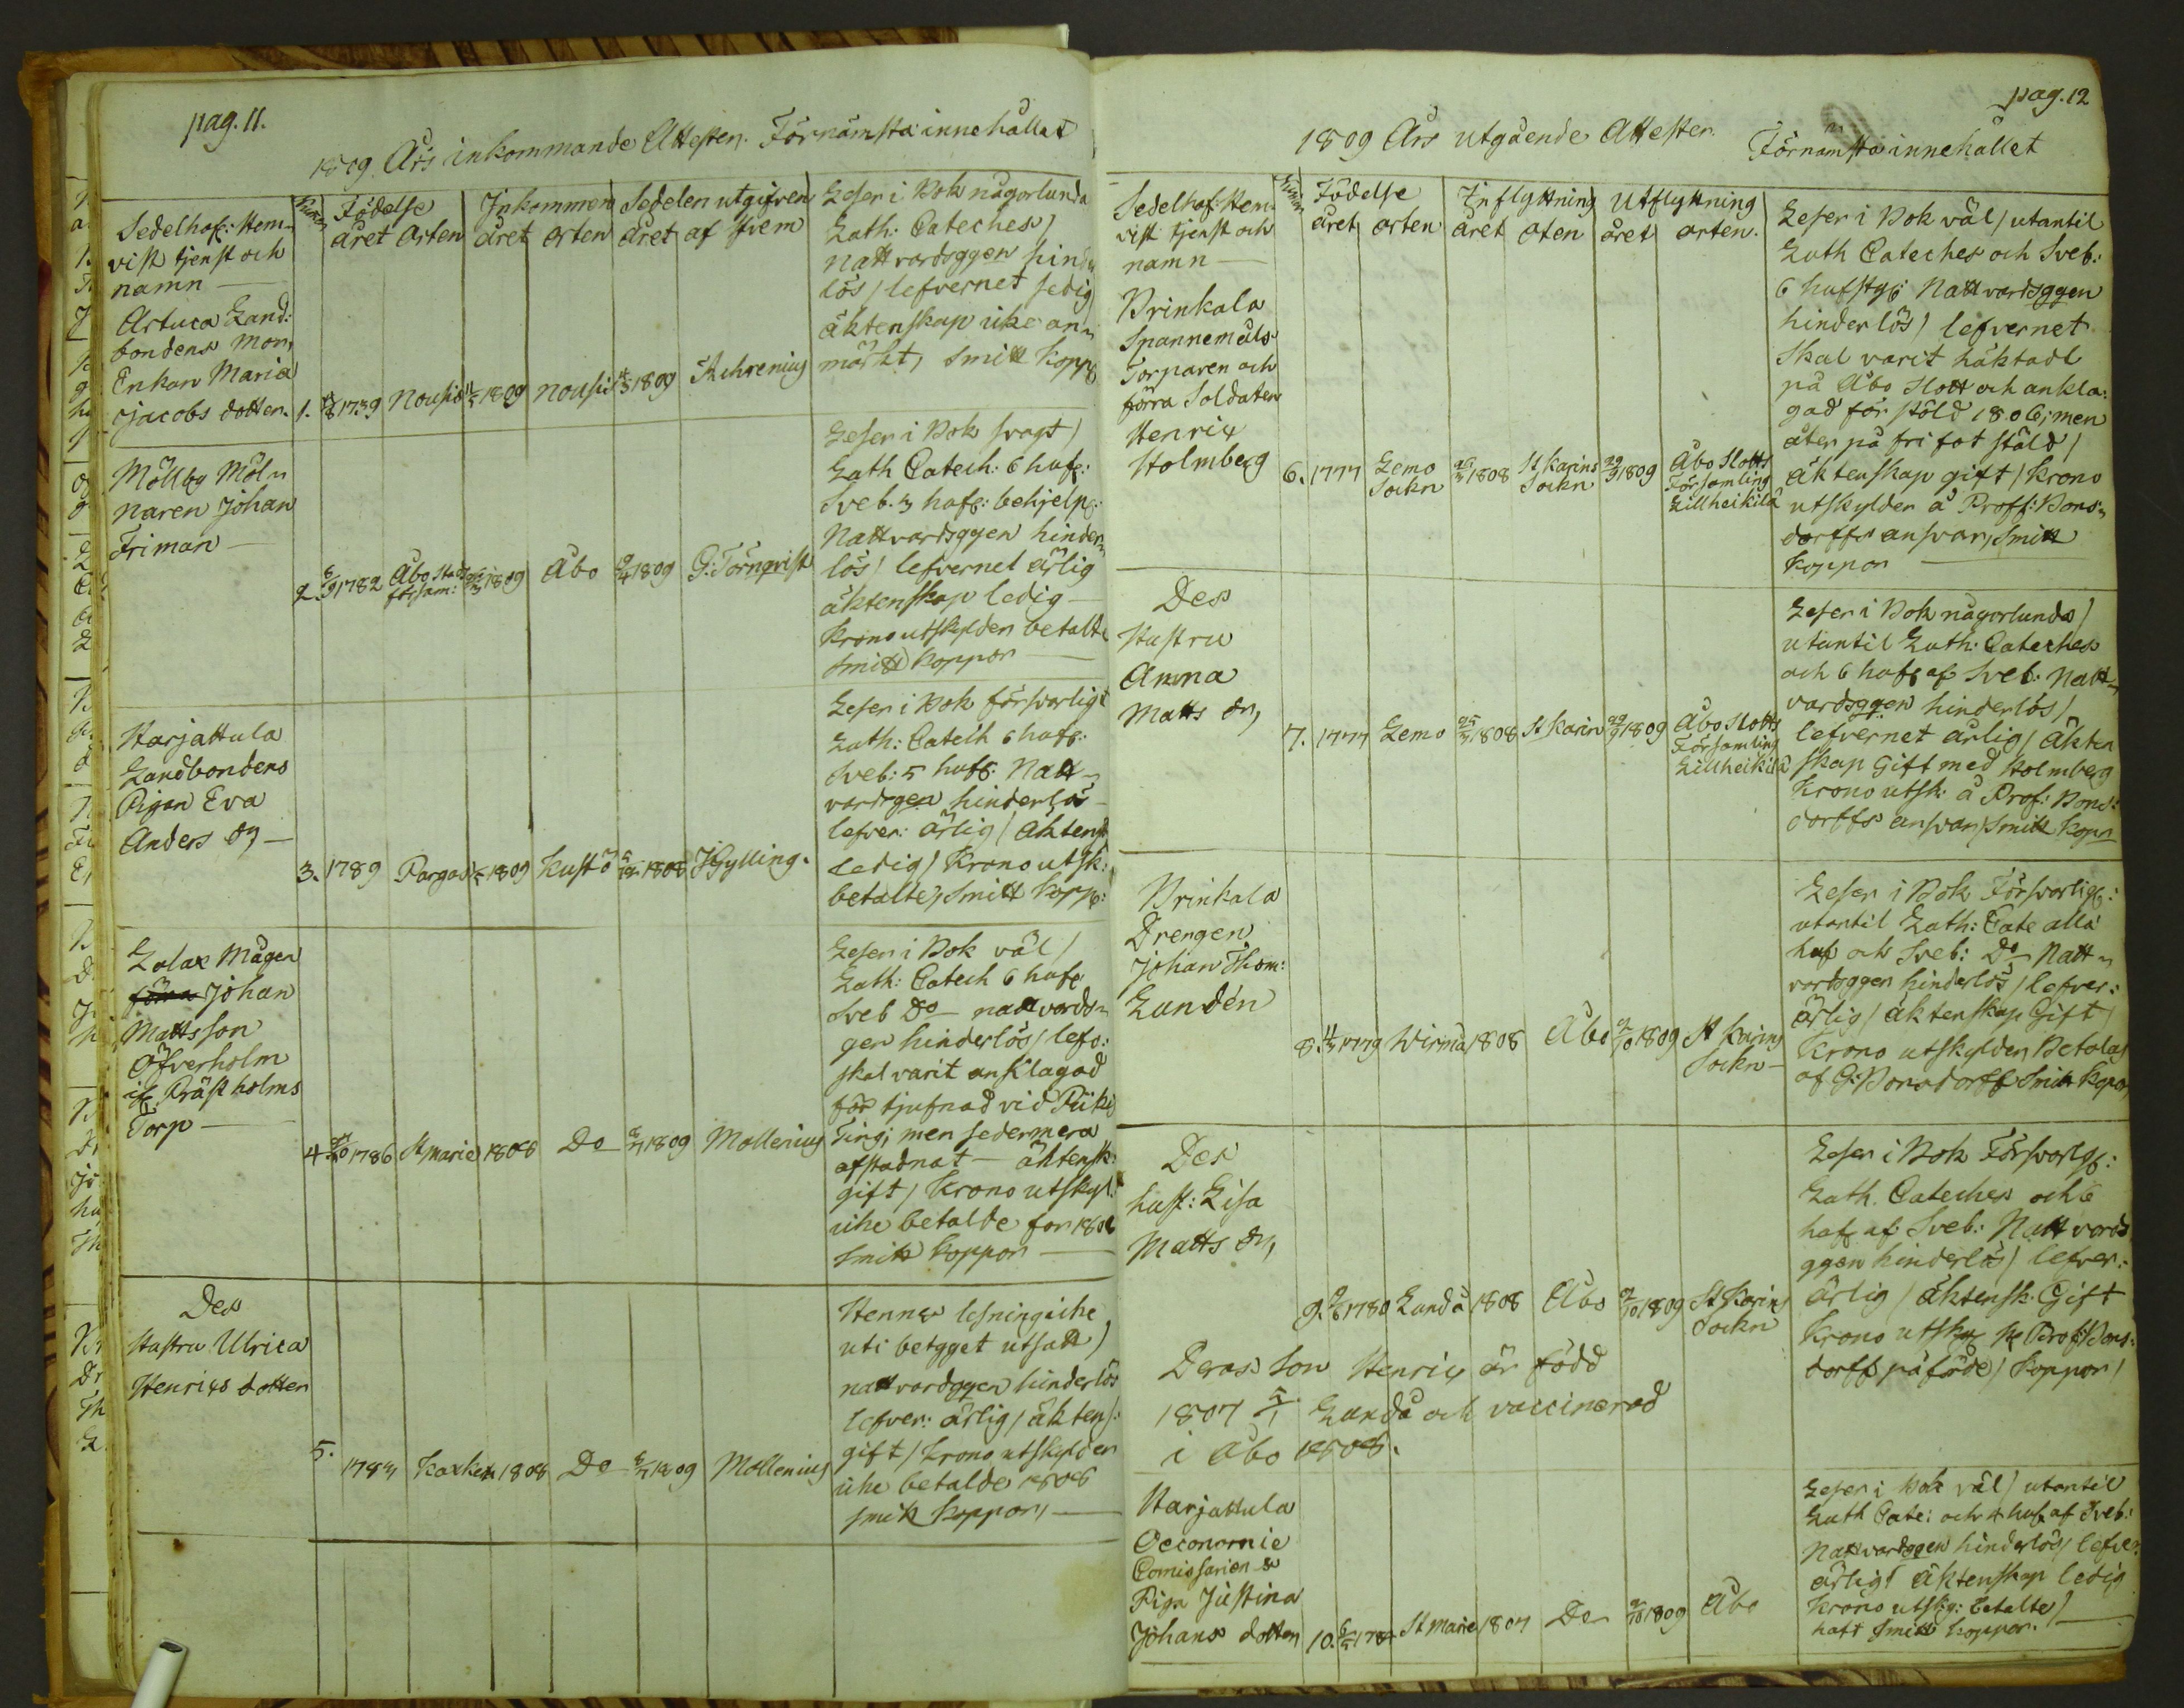 pag. 11.
1809 Års inkommande Attester. Förnämsta innehållet
Sedelhaf: Hem-
vist tjenst och
namn
Num
Födelse
året Orten
Inkommen
året orten
Sedelen utgifven
året af hvem
Artuca Land:
bondens Mor,
Enkan Maria
Jacobs dotter. 1. 1739 Nousis 1809 Nousis 1809
Läser i Bok någorlunda
Luth: Cateches)
nattvardsggen hinder
lös) lefvernet sedig
äktenskap icke an-
märkt, Smitt kopp
Möllby Möl-
naren Johan
Friman
2. 1782 Åbo Stads
försam: 1809 Åbo 1809 G: Törnqvist
Läser i Bok svagt)
Luth Catech: 6 huf:
Sveb. 3 huf: behjelp:
Nattvardsggen hinder-
lös) lefvernet ärlig
äktenskap ledig
Krono utskylder betalte
smitt koppor
Harjattula
Landbondens
Pigan Eva
Anders dr
3. 1789 Pargas 1809 Kustö 1808 J Gylling.
Läser i Bok försvarligt
Luth: Catech 6 huf:
Sveb: 5 huf: Natt-
vardsgen hinderlös
lefver: ärlig) äktensk
ledig) Krono utsk:
betalte, Smitt kopp:
Lalax Mågen
förra Johan
Mattsson
Öfverholm
Prästholms
Torp
4 1786 St Marie 1808 Do 1809 Mollenius
Läser i Bok väl)
Luth: Catech 6 huf
Sveb Do nattvards-
gen hinderlös) lefv:
skal varit anklagad
för tjufnad vid Piikis
Ting; men sedermera
afstadnat äktensk:
gift) Krono utskyl:
icke betalde for 1808
Smitt koppor
Des
Hustru Ulrica
Henrics dotter
5. 1783 Koxken 1808 Do 1809 Mollenius
Hennes lesning icke
uti betyget utsatt)
nattvardggen hinderlös
lefver: ärlig) äktens:
gift) Krono utskylder
icke betalde 1808
smitt koppor)
pag. 12
1809 Års utgående Attester Förnämsta innehållet
Sedelhaf: Hem
vist tjenst och
namn
Num
Födelse
året orten
Inflyttning
året oten
Utflyttning
året orten.
Brinkala
Spannemåls
Torparen och
förra Soldaten
Henric
Holmberg 6. 1777 Lemo
Sockn 1808 St Karins
Sockn 1809 Åbo Slotts
Församling
Lillheikilä
Läser i Bok väl) utantil
Luth Cateches och Sveb:
6 hufstg: Nattvardsggen
hinderlös) lefvernet
skal varit häktadt
på Åbo Slott och ankla:
gad för stöld 1806; men
åter på fri fot stäld)
äktenskap gift) Krono
utskylder å Proff: Bons-
dorffs ansvar, Smitt
koppor
Des
Hustru
Anna
Matts dr,
7. 1777 Lemo 1808 St Karin 1809 Åbo Slotts
Församling
Lillheikilä
Läser i Bok någorlunda)
utantil Luth: Cateches
och 6 huf af Sveb: Natt-
vardsggen hinderlös)
lefvernet ärlig) äkten
skap Gift med Holmberg
Krono utsk: å Prof: Bons:
dorffs ansvar) Smitt kopr
Brinkala
Drengen
Johan Thom:
Lundén
8. 1779 Wirmå 1808 Åbo 1809 St Karins
Sockn
Läser i Bok Försvarlig:
utantil Luth: Cate alla
huf och Sveb: Do Natt-
vardsggen hinderlös) lefver:
ärlig) äktenskap Gift)
Krono utskylder Betalas
af G: Bonsdorff Smitt kopo,
Des
hust: Lisa
Matts dr,
9. 1780 Lundå 1808 Åbo 1809 St Karins
Sockn
Läser i Bok Försvarlg:
Luth. Cateches och 6
huf af Sveb: Nattvards
ggen hinderlös) lefver:
ärlig) äktensk. Gift
Krono utsky Prof: Bons:
dorff påförde) koppor)
Deras Son Henric är född
1807 5/1 Lundå och vaccinerad
i Åbo 1808.
Harjattula
Oeconomie
Comissariens
Piga Justina
Johans dotter 10. St Marie 1807 Do 1809 Åbo
Läser i Bok väl) utantil
Luth Cate: och 4 huf af Sveb:
Nattvardsgen hinderlös) lefver
ärlig) äktenskap ledig
Krono utsky: betalte)
haft smitt koppor.